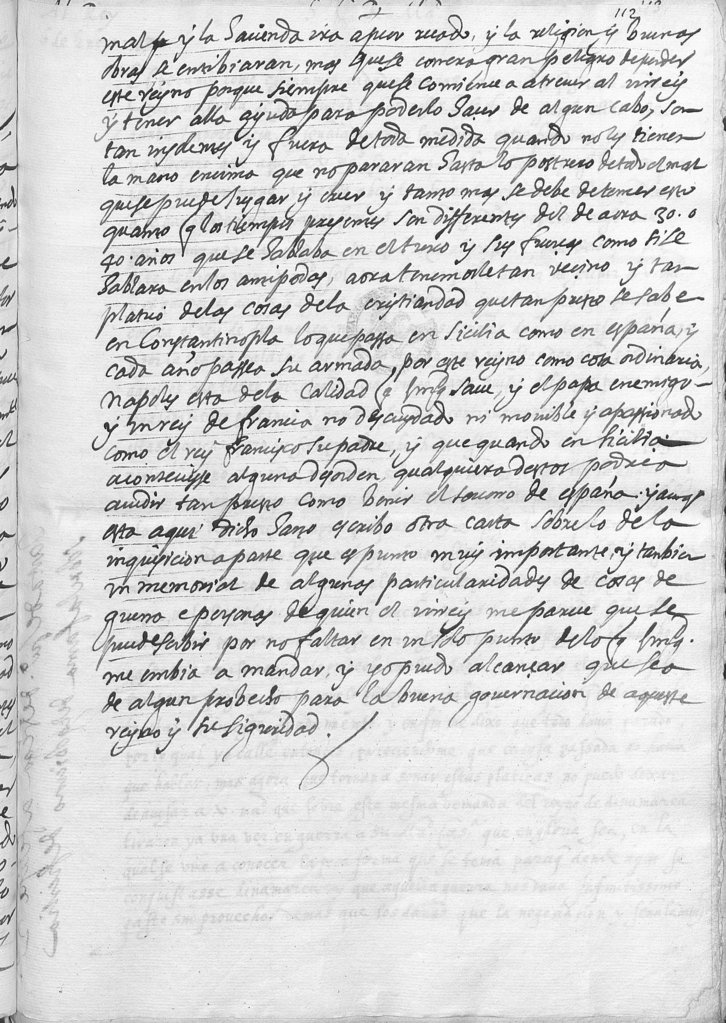 112
mal, y la hazienda ira a peor recado, y la religion y buenas
obras se entibiaran, mas que se correra gran peligro de perder
este reyno porque siempre que se comience a atrever al virrey
y tener alla ayuda para poderlo hazer de algun cabo, son
tan insolentes y fuera de toda medida quando no les tienen
la mano encima que no pararan hasta lo postrero de todo el mal
que se puede juzgar y creer y tanto mas se debe de temer esto
quanto q los tiempos presentes son differentes del de aora 30. o
40. años que se hablaba en el turco y sus fuerças como si se
hablara en los antipodas, aora tenemosle tan vezino y tan
platico de las cosas de la cristiandad que tan presto se sabe
en Constantinopla lo que passa en Sicilia como en españa, y
cada año passea su armada por este reyno como cosa ordinaria,
Napoles esta de la calidad q smg save, y el papa enemigo
y un rey de francia no descuydado ni movible y apassionado
como el rey francisco su padre, y que quando en sicilia
aconteciesse alguna desorden, qualquiera destos podria
acudir tan presto como venir el socorro de españa. y aunq
esta aqui dicho harto escribo otra carta sobre lo de la
inquisicion aparte que es punto muy importante, y tanbien
un memorial de algunas particularidades de cosas de
guerra e personas de quien el virrey me parece que se
puede servir por no faltar en un solo punto de lo q smg.
me embia a mandar, y yo puedo alcançar que sea
de algun probecho para la buena governacion de aqueste
reyno y su siguridad.